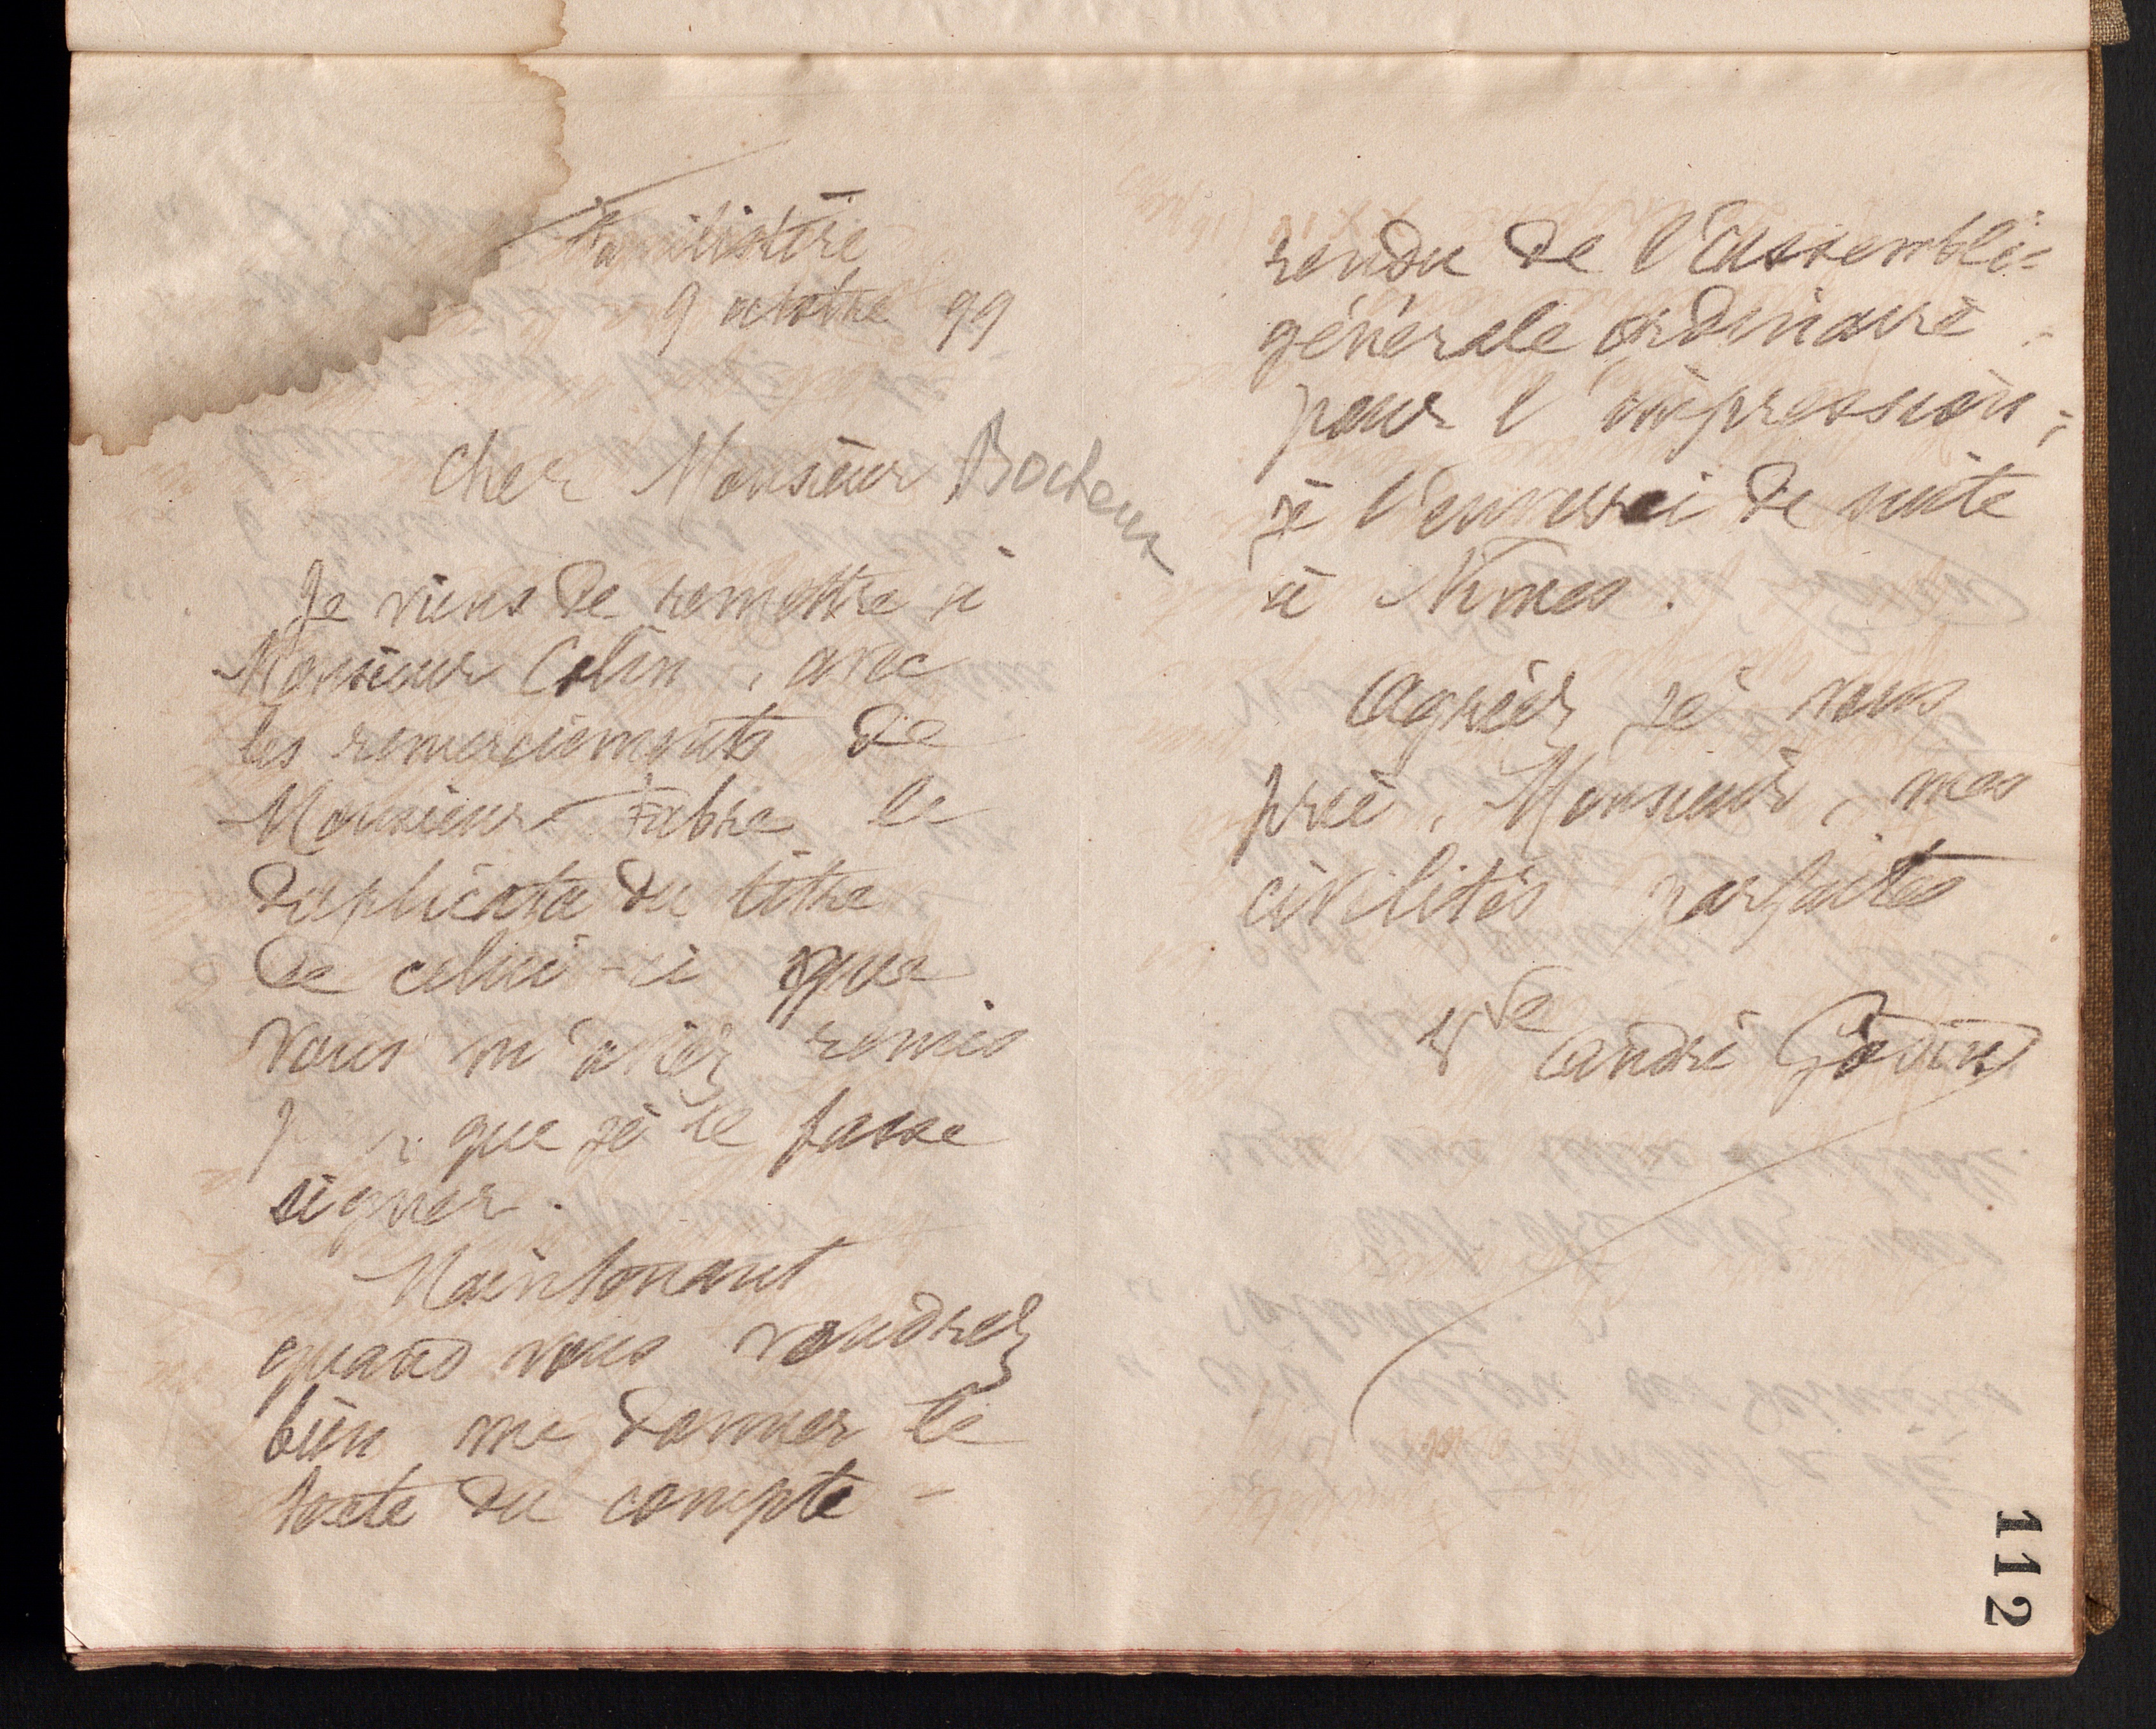 Familistère
9 octobre 99
Cher Monsieur Bocheux
Je viens de remettre à
Monsieur Colin, avec
les remerciements de
Monsieur Fabre le
duplicata du titre
de celui-ci que
vous m'aviez remis
pour que je le fasse
signer.
Maintenant
quand vous voudrez
bien me donner le
texte du compte-
rendu de l'assemblée
générale ordinaire
pour l'impression,
je l'enverrai de suite
à Nîmes.
Agréez je vous
prie, Monsieur, mes
civilités parfaites
Vve André Godin
112